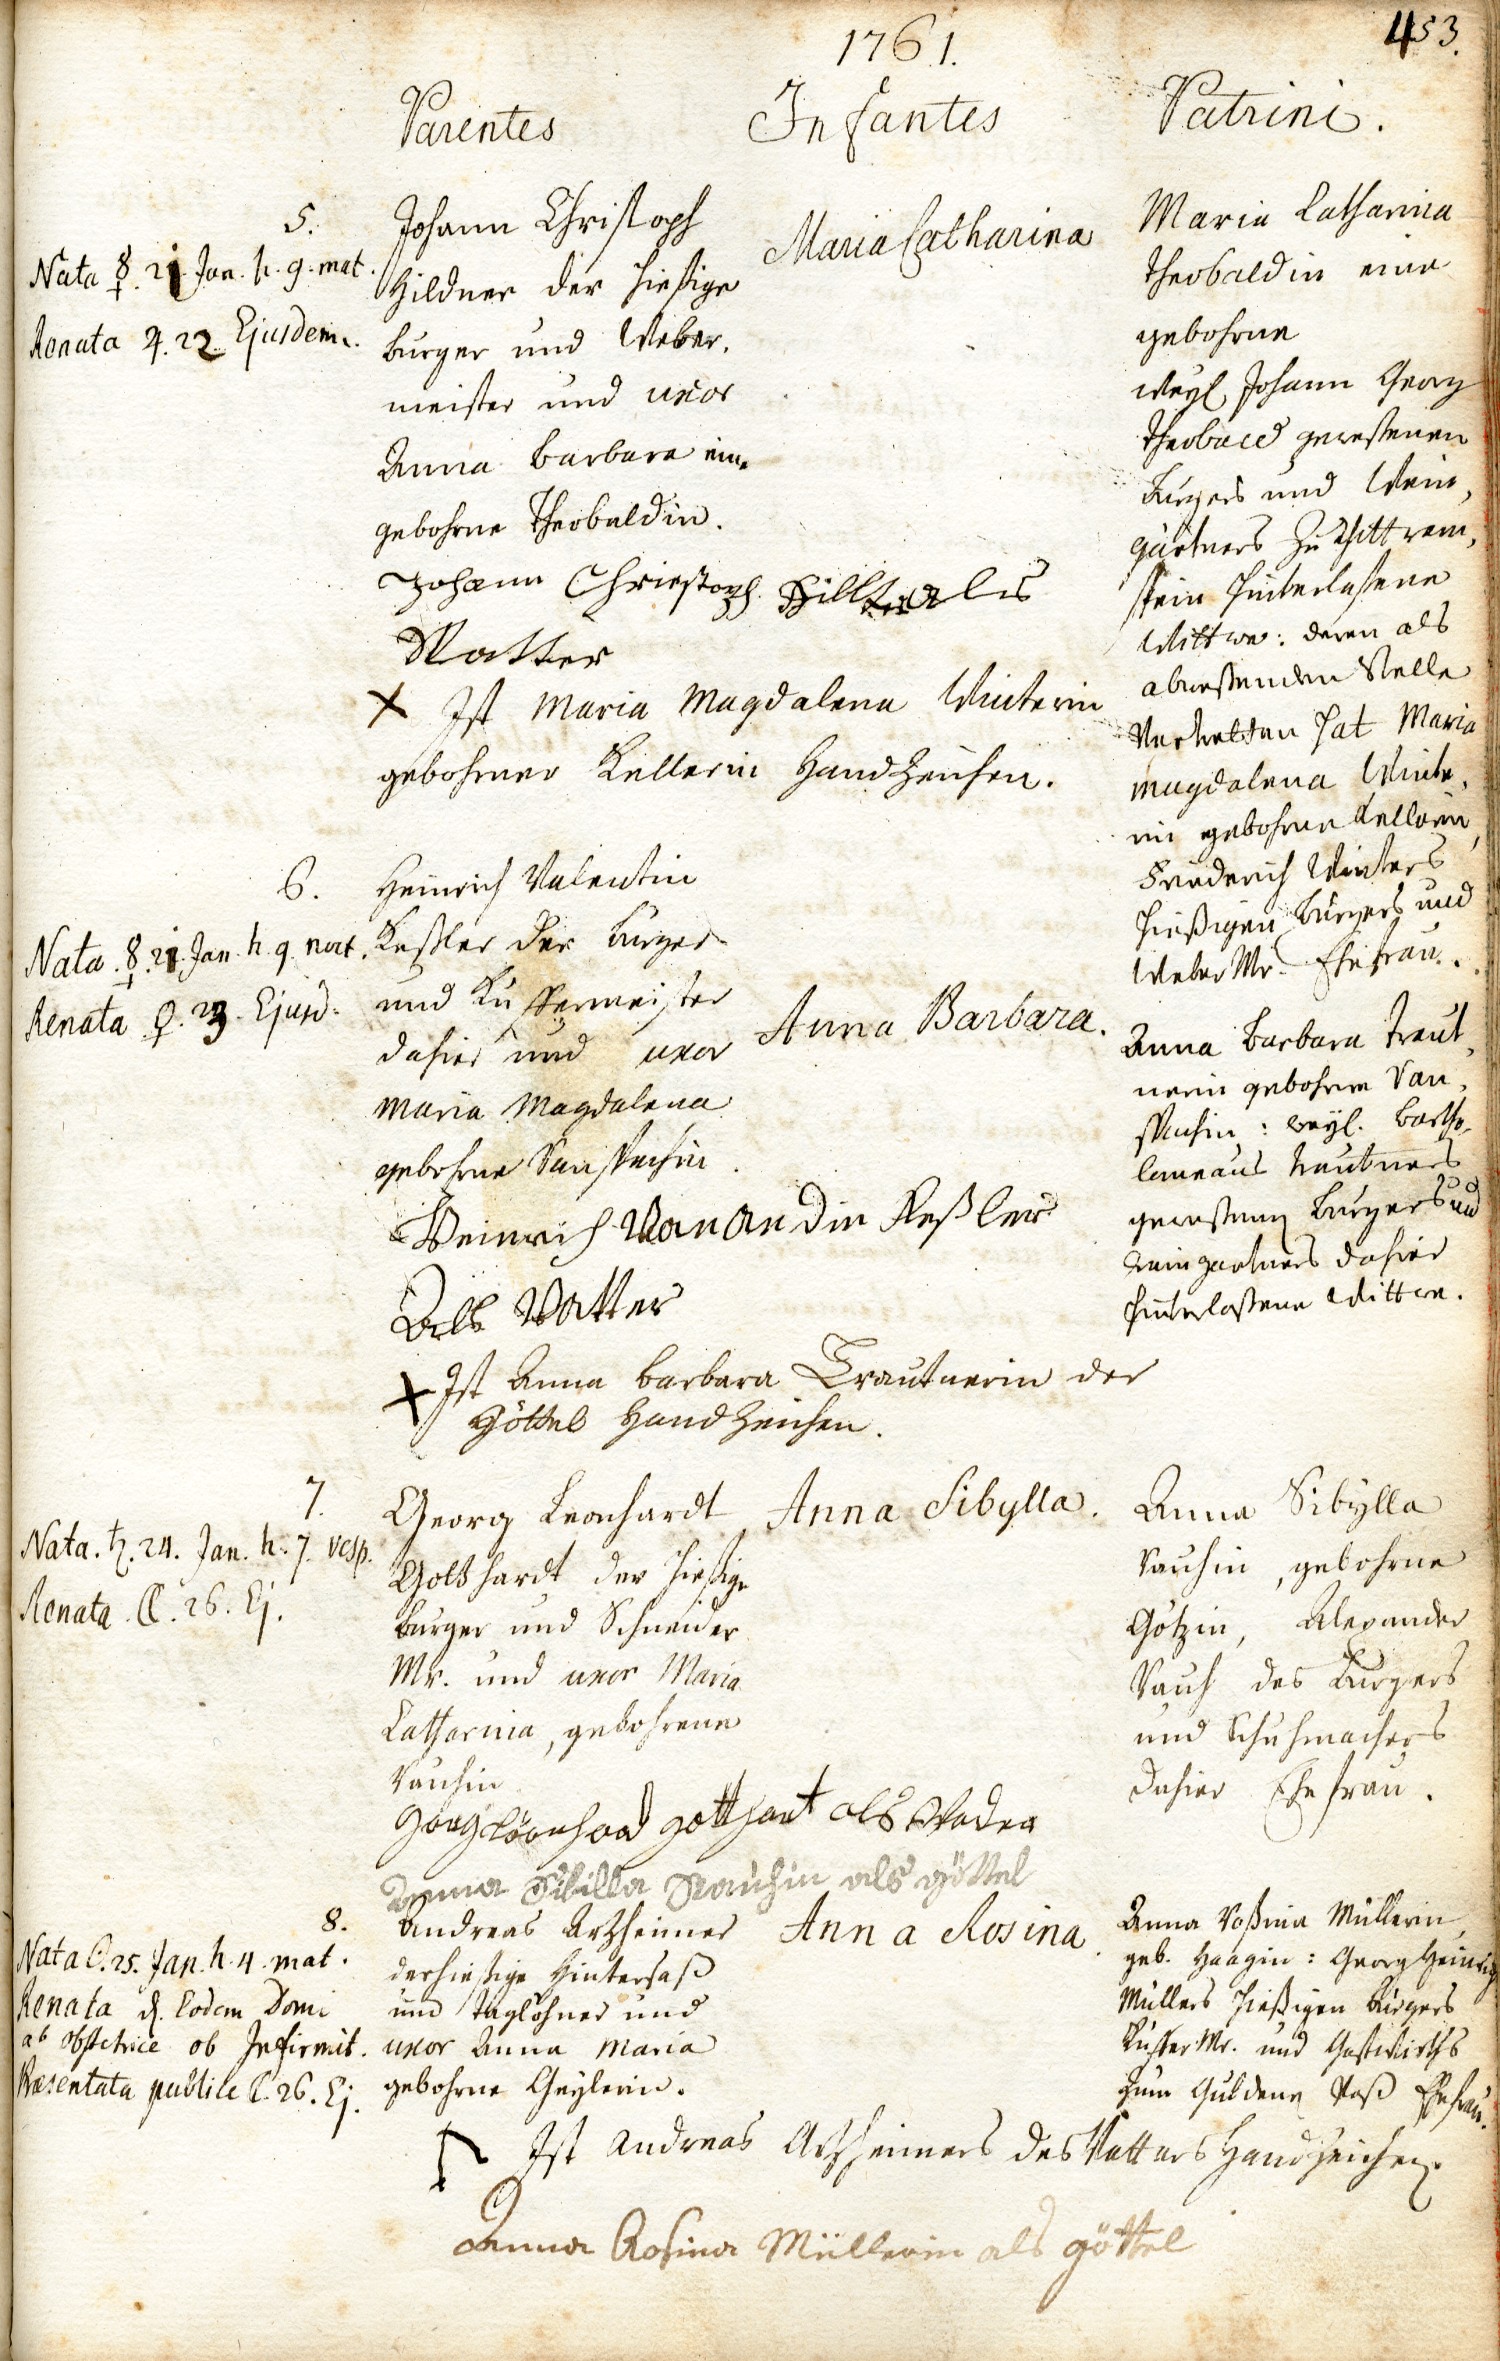 1761.
453.
Parentes
Infantes
Patrini.
5.
Nata ☿. 21. Jan. h. 9. mat.
Renata ♃. 22. Ejusdem.
Johann Christoph
Hildner der hießige
burger und Weber,
meister und uxor
Anna Barbara eine
gebohrne Theobaldin.
Maria Catharina
Maria Catharina
Theobaldin eine
gebohrne
weyl. Johann Georg
Theobald gewesenen
Burgers und Wein,
gärtners zu
stein hinterlaßene
Wittwe: deren als
abweßenden Stelle
Vertretten hat Maria
Magdalena Winte,
rin gebohrne Kellerin,
Friederich Winters
hießigen Burgers und
Weber Mr. Ehefrau.
Johann Christoph als
Vatter
+ Ist Maria Magdalena Winterin
gebohrner Kellerin Handzeichen.
6.
Nata. ☿. 21. Jan. h. 9. noct.
Renata ♀. 23. Ejusd.
Heinrich Valentin
Keßler der burger
und Kuffermeister
dahier und uxor
Maria Magdalena
gebohrne
Anna Barbara.
Anna Barbara Traut,
nerin gebohrne Van,
: weyl. Bartho,
lomeaus Trautners
gewesenen Burgers und
Weingartners dahier
hinterlaßene Wittwe.
Heinrich Keßler
Als Vatter
+ Ist Anna Barbara Trautnerin der
Göttel Handzeichen.
7.
Nata. ♄. 24. Jan. h. 7. vesp.
Renata ☾. 26. Ej.
Georg Leonhardt
Gotthardt der hießige
burger und Schneider
Mr. und uxor Maria
Catharina, gebohrene
Rauchin
Anna Sibylla.
Anna Sibylla
Rauchin, gebohrne
Götzin, Alexander
Rauch des Burgers
und Schuhmachers
dahier Ehefrau.
gotthart als Vader
Anna Sibilla Rauchin als göttel
8.
Nata ☉. 25. Jan. h. 4. mat.
Renata d. Eodem Domi
ab obstetrice ob Infirmit.
Præsentata publice ☾. 26. Ej.
Andreas Arzheimer
der hießige Hintersaß
und taglöhner und
uxor Anna Maria
gebohrne Geylerin.
Anna Rosina
Anna Roßina Müllerin,
geb. Haagin: Georg Heinrich
Müllers hießigen Burgers
Kuffer Mr. und Gastwirths
zum Guldenen Roß Ehefrau.
Ist Andreas Arzheimers des Vatters Handzeichen.
Anna Rosina Müllerin als göttel